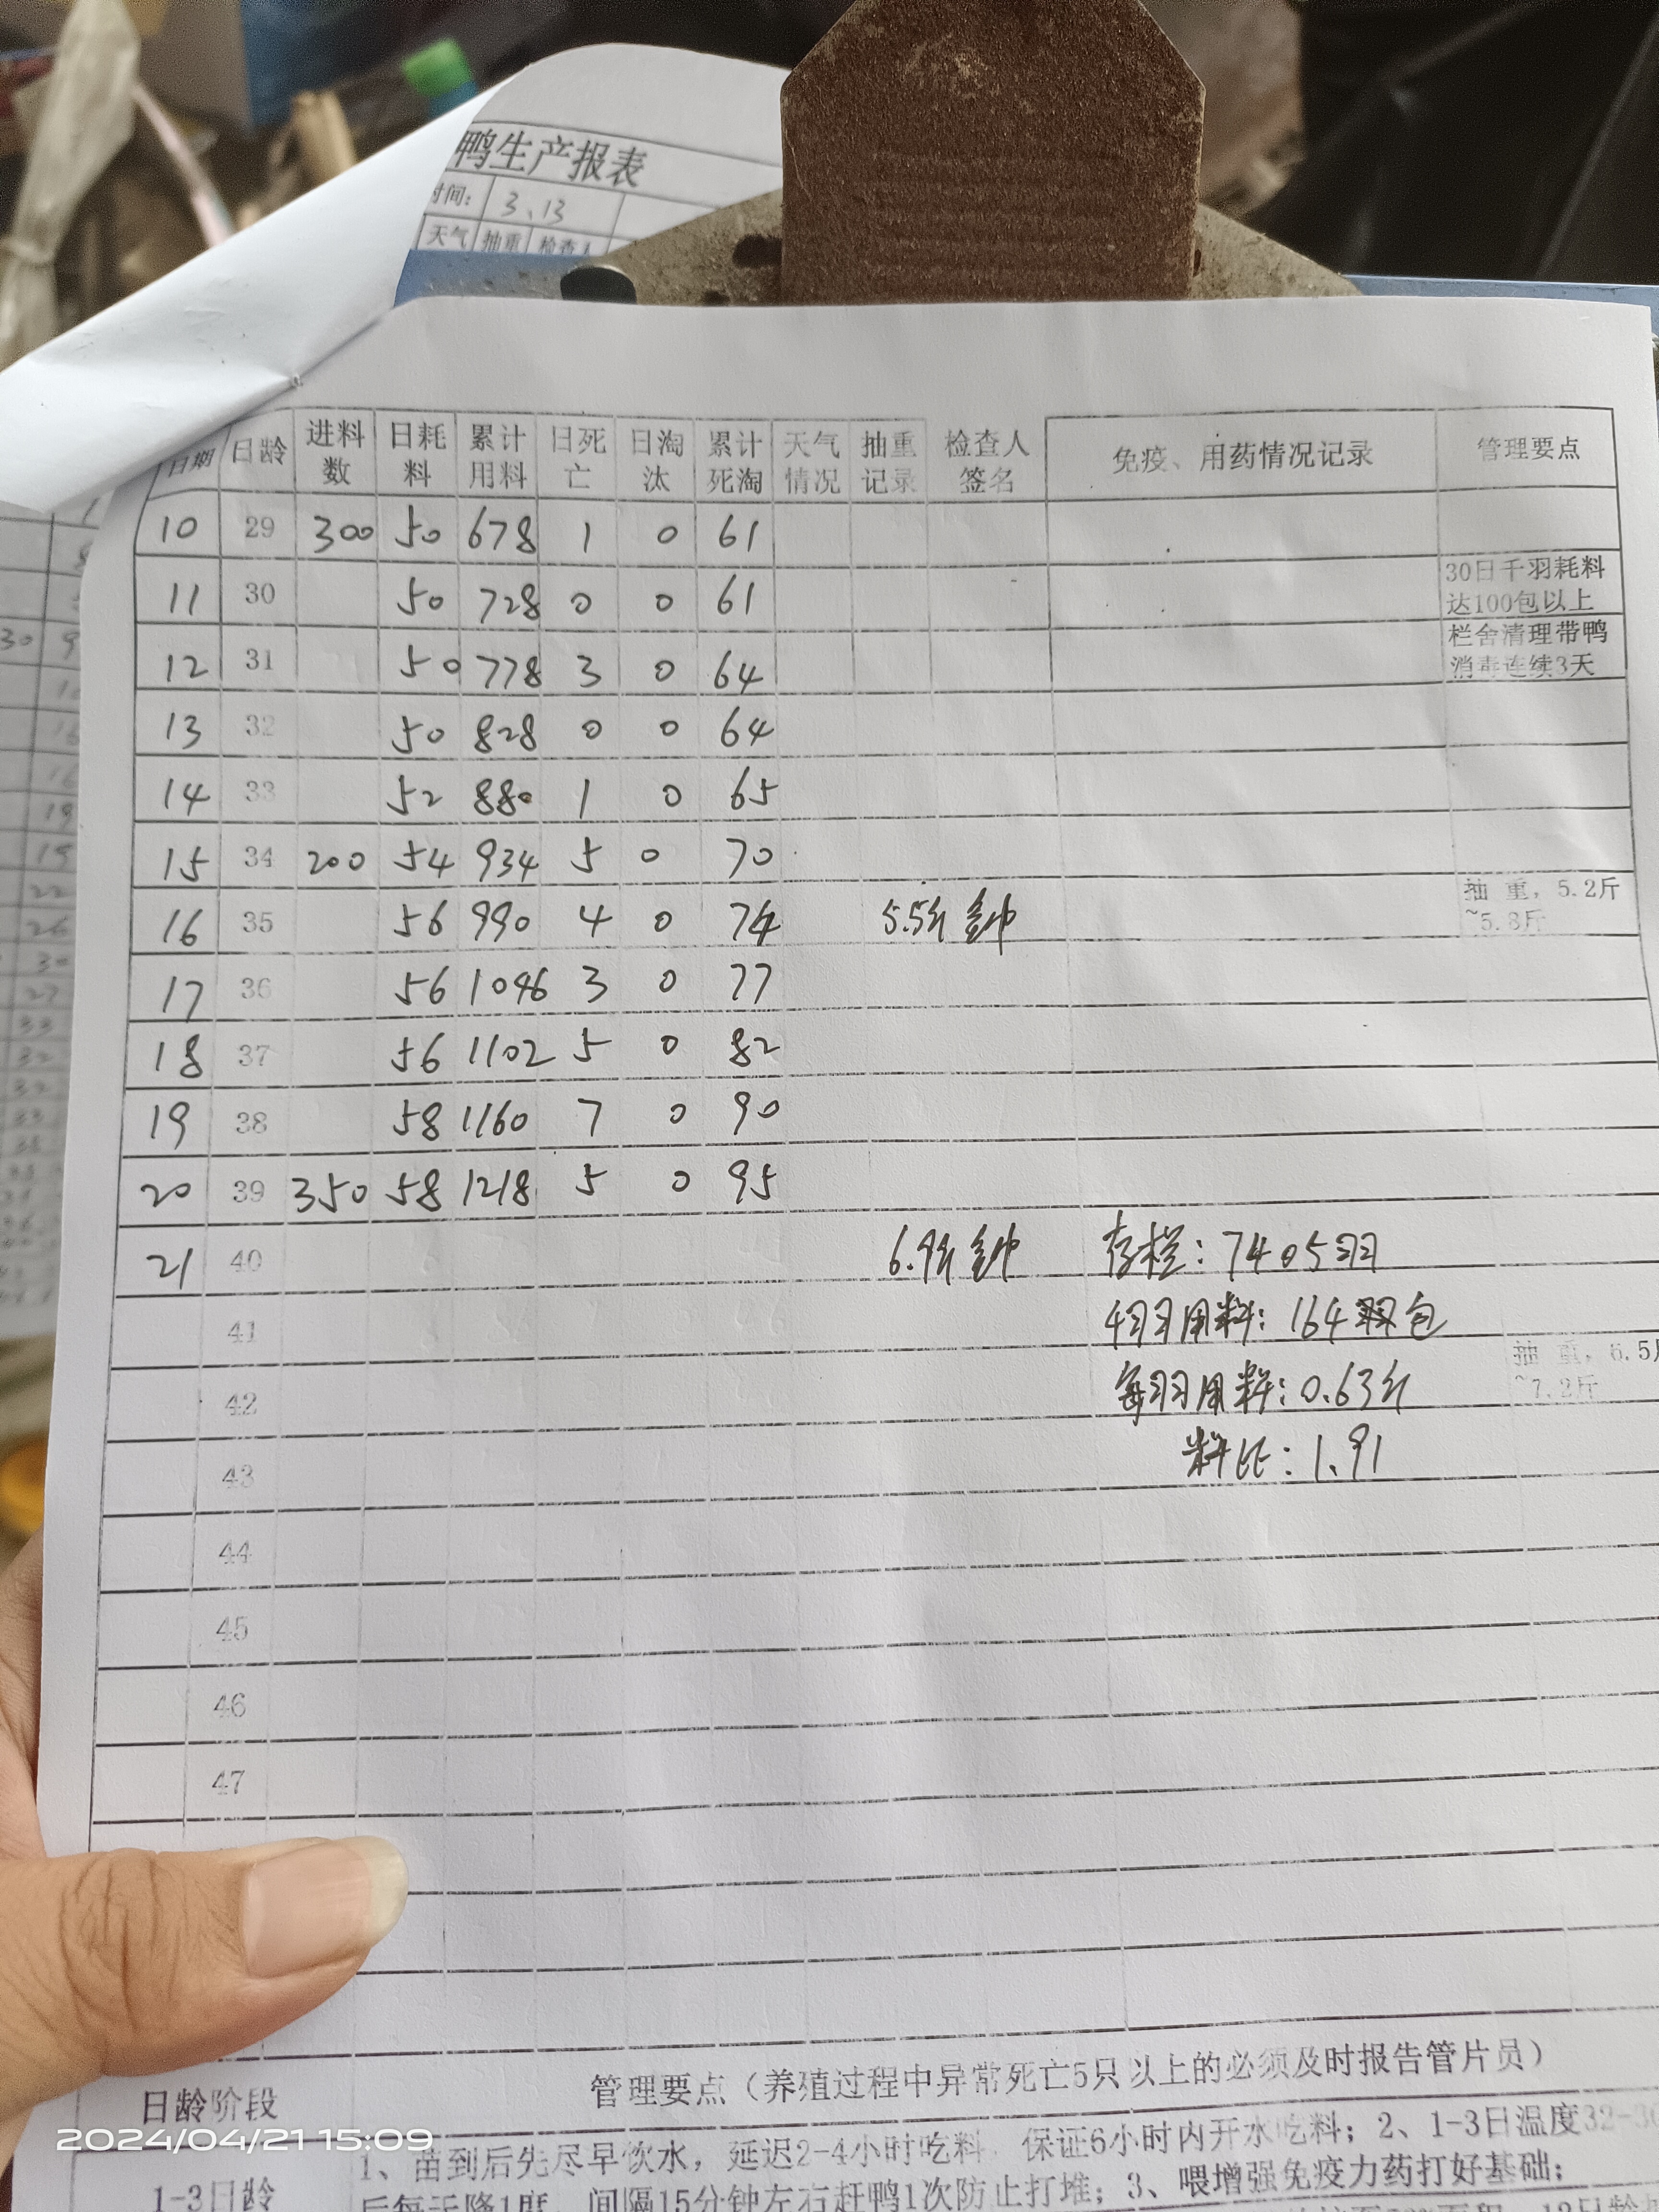 鸭生产报表
时间： 3、13
天气 抽重 检查人
日期 日龄 进料数 日耗料 累计用料 日死亡 日淘汰 累计死淘 天气情况 抽重记录 检查人签名 免疫、用药情况记录 管理要点
10 29 300 50 678 1 0 61
11 30 50 728 0 0 61 30日千羽耗料达100包以上
12 31 50 778 3 0 64 栏舍清理带鸭消毒连续3天
13 32 50 828 0 0 64
14 33 52 880 1 0 65
15 34 200 54 934 5 0 70
16 35 56 990 4 0 74 5.5斤 抽 重，5.2斤~5.8斤
17 36 56 1046 3 0 77
18 37 56 1102 5 0 82
19 38 58 1160 7 0 90
20 39 350 58 1218 5 0 95
21 40 6.9斤 存栏：7405羽
41 千羽用料：164包
42 每羽用料：0.63斤 抽 重，6.5斤~7.2斤
43 料比：1.91
44
45
46
47
日龄阶段 管理要点（养殖过程中异常死亡5只以上的必须及时报告管片员）
1-3日龄 1、苗到后先尽早饮水，延迟2-4小时吃料，保证6小时内开水吃料；2、1-3日温度32-3
后每天降1度，间隔15分钟左右赶鸭1次防止打堆；3、喂增强免疫力药打好基础；
2024/04/21 15:09